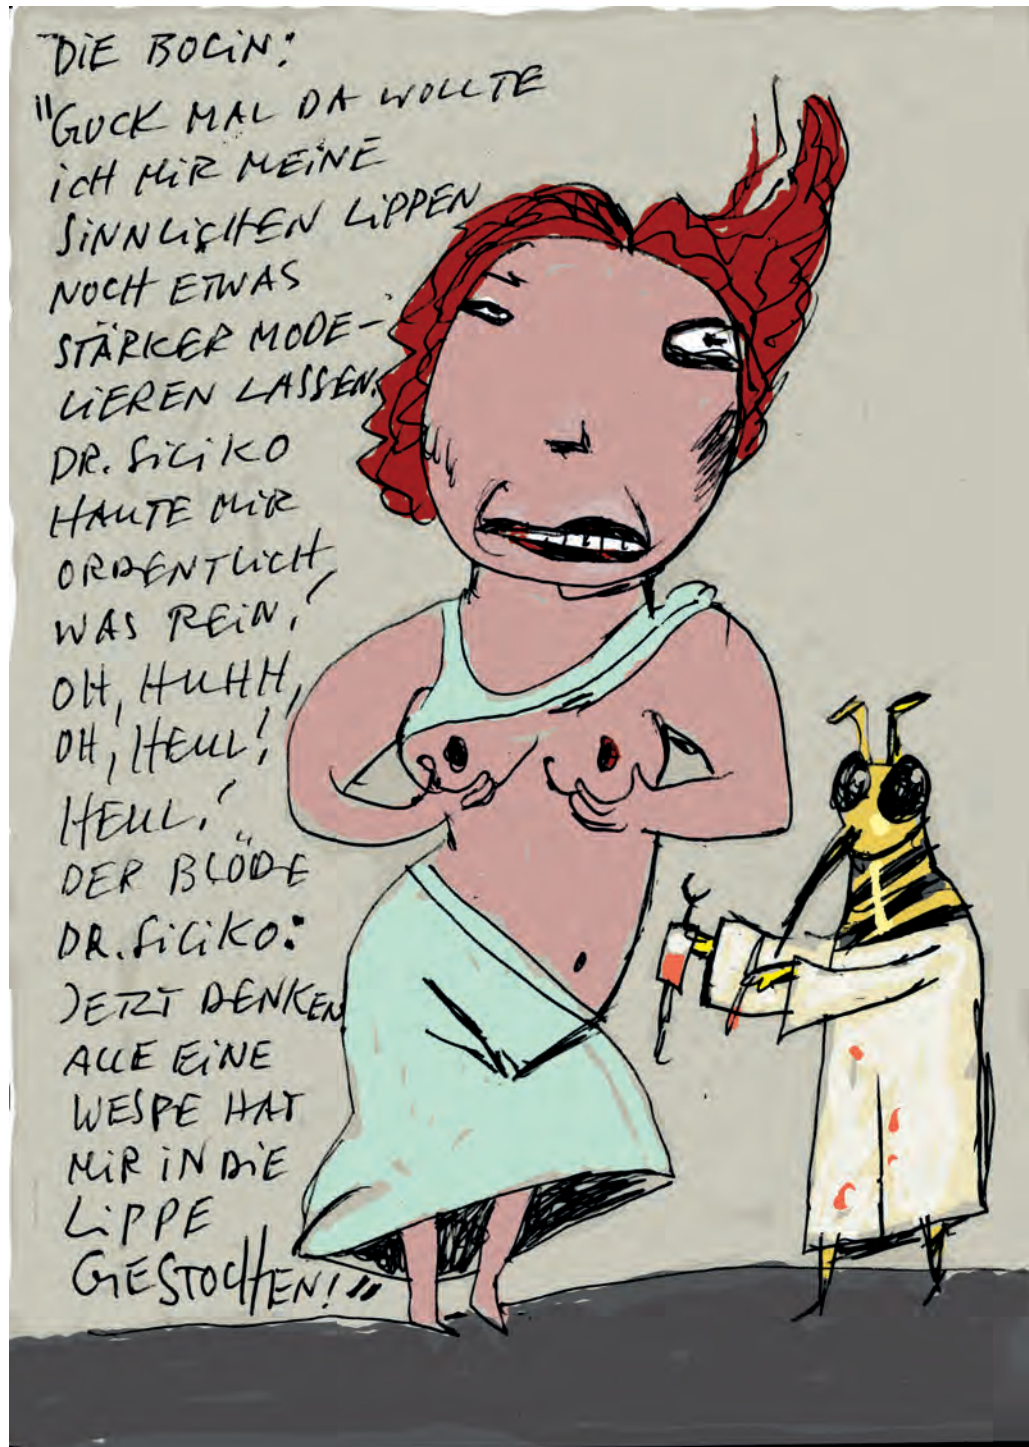 DIE BOLIN:
"GUCK MAL DA WOLLTE
ICH MIR MEINE
SINNLICHEN LIPPEN
NOCH ETWAS
STÄRKER MODE-
LIEREN LASSEN.
DR. SILIKO
HAUTE MIR
ORDENTLICH
WAS REIN!
OH, HUHH,
OH, HEUL!
HEUL!
DER BLÖDE
DR. SILIKO:
JETZT DENKEN
ALLE EINE
WESPE HAT
MIR IN DIE
LIPPE
GESTOCHEN!"